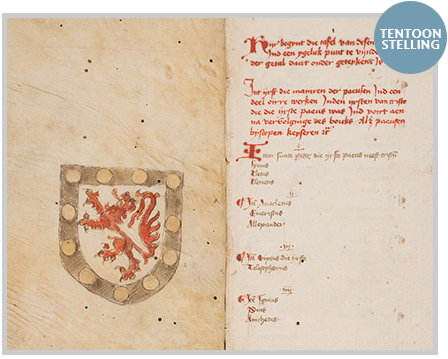 TENTOON
STELLING
Hijr begynt die tafel van desen
Ind eyn ygelick punt te vijnde
der getal dair onder geteykent
Int yrst die namen der paeusen Ind een
deel oire werken Inden yrsten van cristo
die die yrste paeus was Ind voirt aen
na vervolginge des boucks Alz paeusen
bysscopen keyseren
Item sunte peter die yrste paeus neest cristum
Linus
Cletus
Clemens
Van Anacletus
Evaristus
Allexander
Van Sixtus die yrste
Telesphorus
Van Iginius
Pius
Anichetus